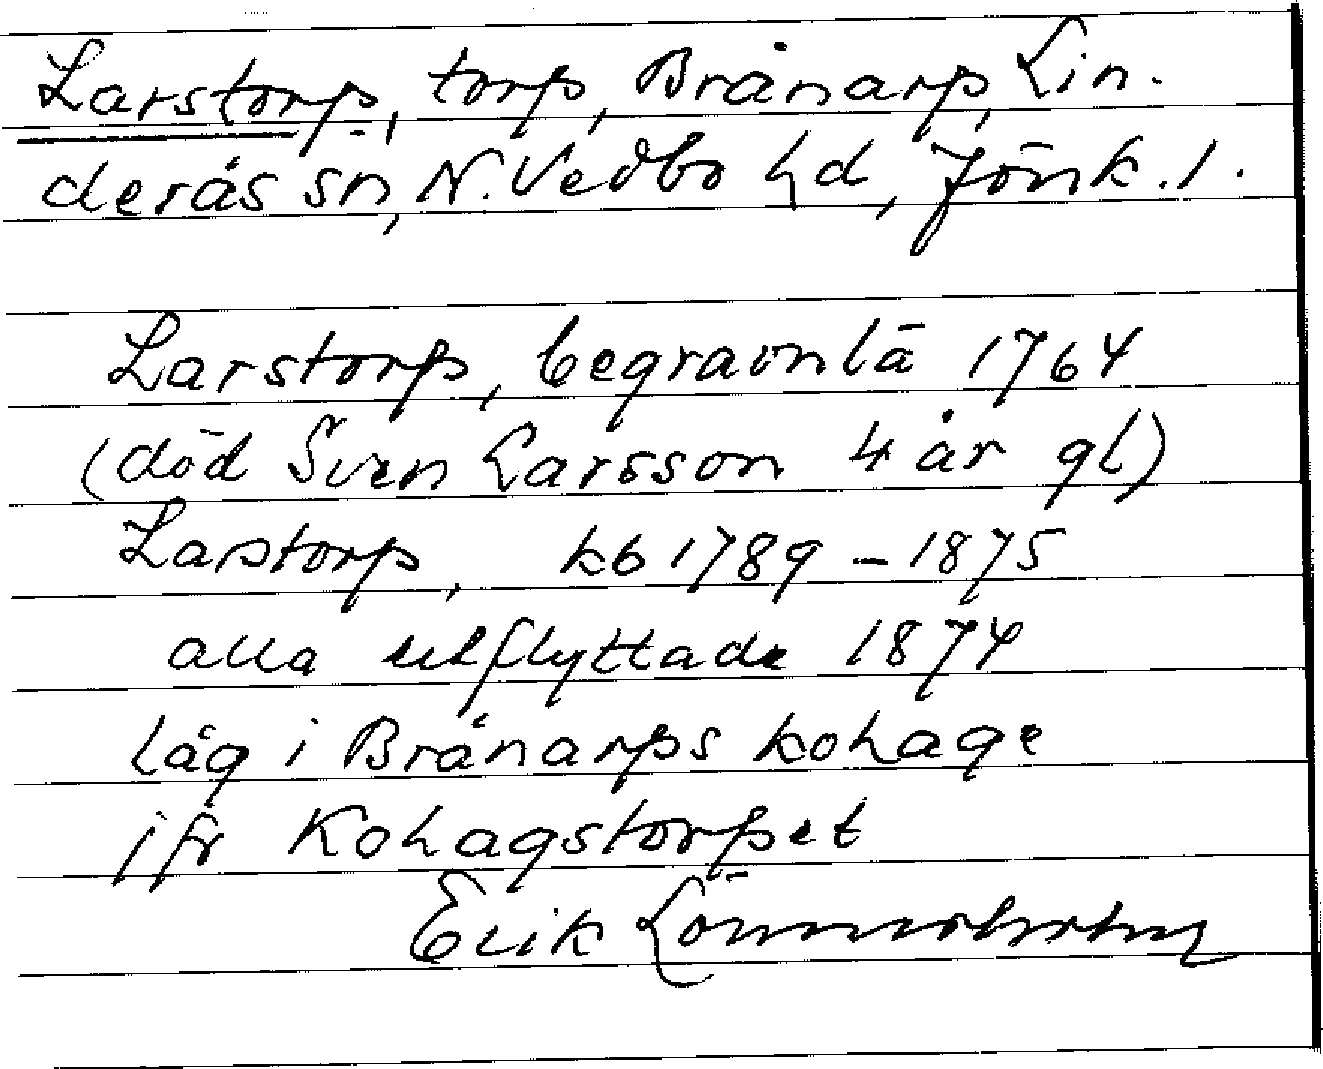 Larstorp, torp, Brånarp, Lin-
derås sn, N. Vedbo hd, Jönk. l.
Larstorp, begravnlä 1764
(död Sven Larsson 4 år gl)
Larstorp, kb 1789 - 1875
alla utflyttade 1874
låg i Brånarps kohage
jfr Kohagstorpet
Erik